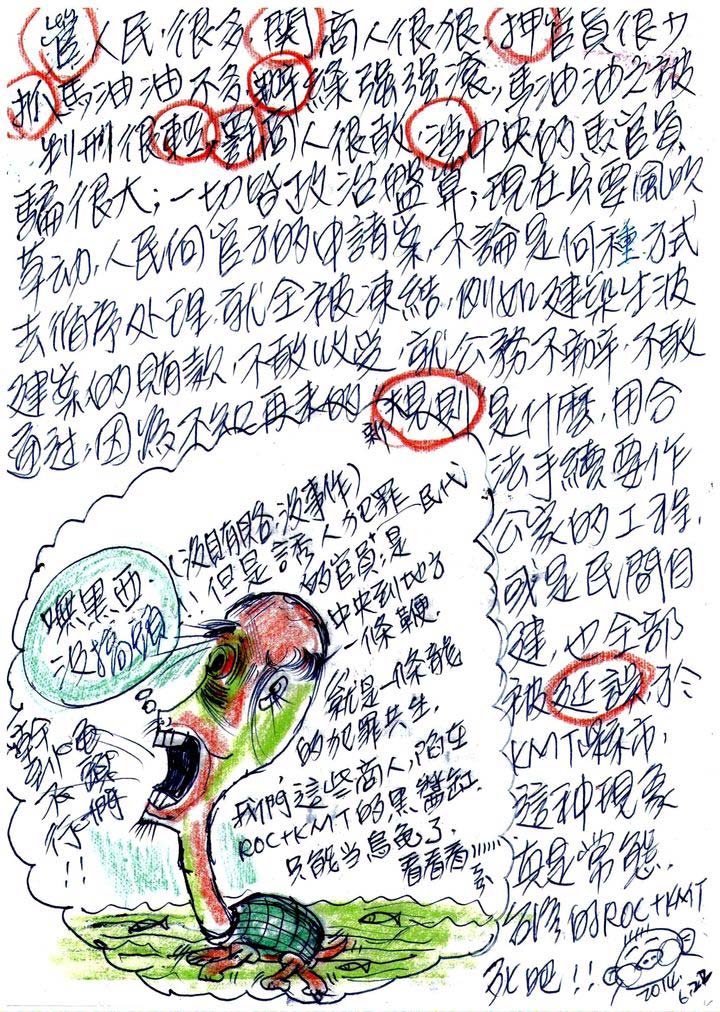 管人民,很多,關商人很狠,押官員很少
抓馬油油不多,辦綠強強滾,馬油油之被
判刑很輕,對商人很敢,涉中央的馬官員
騙很大;一切皆政治盤算;現在只要風吹
草动,人民向官方的申請案,不論是何種方式
去循序处理,就全被凍結,例如建築生波
建案的賄款,不敢收受,就公務不勤辛,不敢
通过,因為不知再來的新規則是什麼,用合
法手續要作
公家的工程,
或是民間自
建,也全部
被延誤,於
KMT縣市,
這种現象
真是常態,
的ROC+KMT
死吧!!
2014.
(沒賄賂,沒事作)
!!但是誘人犯罪
民代
的官員;是
中央到地方
一條鞭,
就是一條龍
的犯罪共生,
我們這些商人,陷在
ROC+KMT的黑醬缸,
只能当烏龜了,
看看看!!!!!!
嘿黑亞,
沒搞頭
不
行
!!